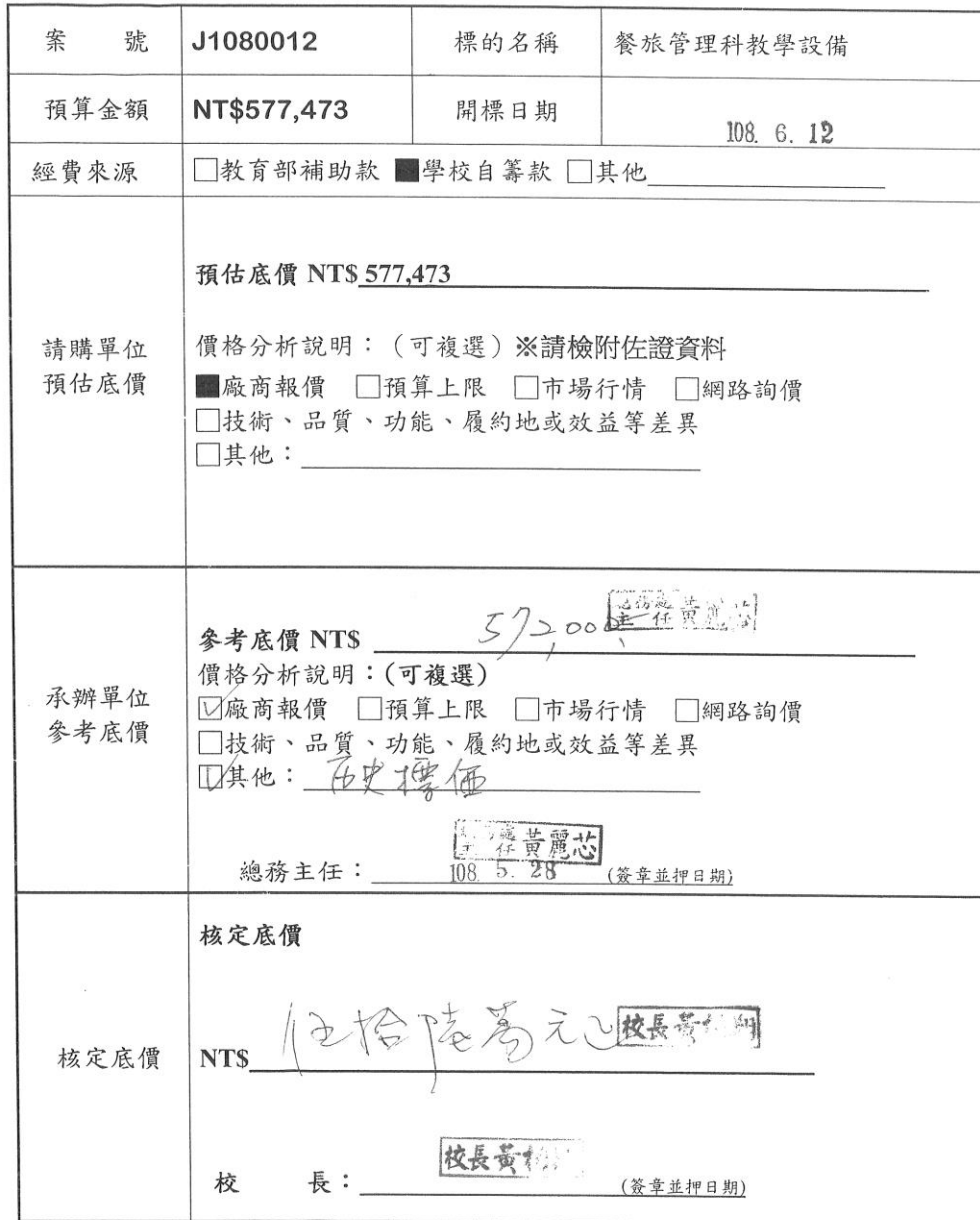 案 號 J1080012 標的名稱 餐旅管理科教學設備
預算金額 NT$577,473 開標日期 108. 6. 12
經費來源 □教育部補助款 ■學校自籌款 □其他
預估底價 NT$ 577,473
請購單位
預估底價
價格分析說明：（可複選）※請檢附佐證資料
■廠商報價 □預算上限 □市場行情 □網路詢價
□技術、品質、功能、履約地或效益等差異
□其他：
參考底價 NT$ 572,000 主任黃麗芯
承辦單位
參考底價
價格分析說明：(可複選)
☑廠商報價 □預算上限 □市場行情 □網路詢價
□技術、品質、功能、履約地或效益等差異
☑其他： 历史標価
主任黃麗芯
總務主任： 108. 5. 28 (簽章並押日期)
核定底價
核定底價
NT$ 伍拾陸萬元 校長黃
校 長： 校長黃 (簽章並押日期)